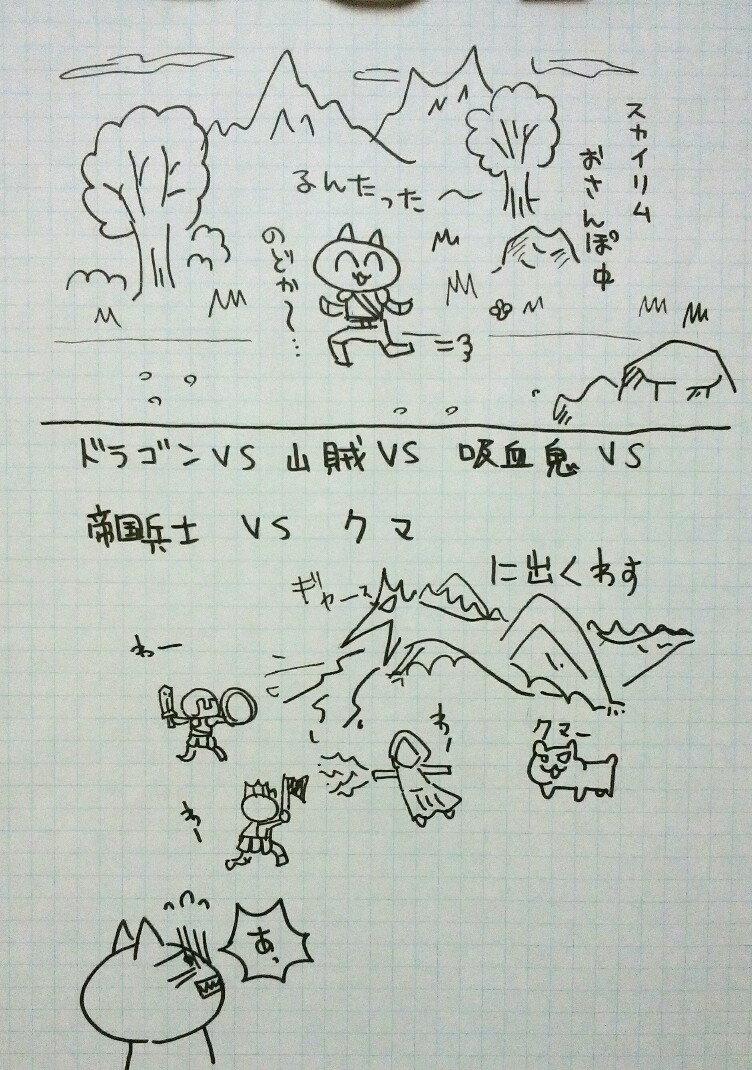 スカイリム
おさんぽ中
るんたった〜
のどか〜…
ドラゴンVS 山賊VS 吸血鬼 VS
帝国兵士 VS クマ
に出くわす
ギャース
わー
わー
クマー
わー
あっ